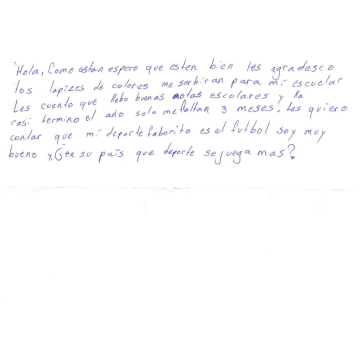 Hola, Como estan espero que esten bien les agradesco
los lapizes de colores me serbiran para mi escuelar
Les cuento que llebo buenas notas escolares y ya
casi termino el año solo me faltan 3 meses, Les quiero
contar que mi deporte faborito es el futbol soy muy
bueno y ¿en su país que deporte se juega mas?